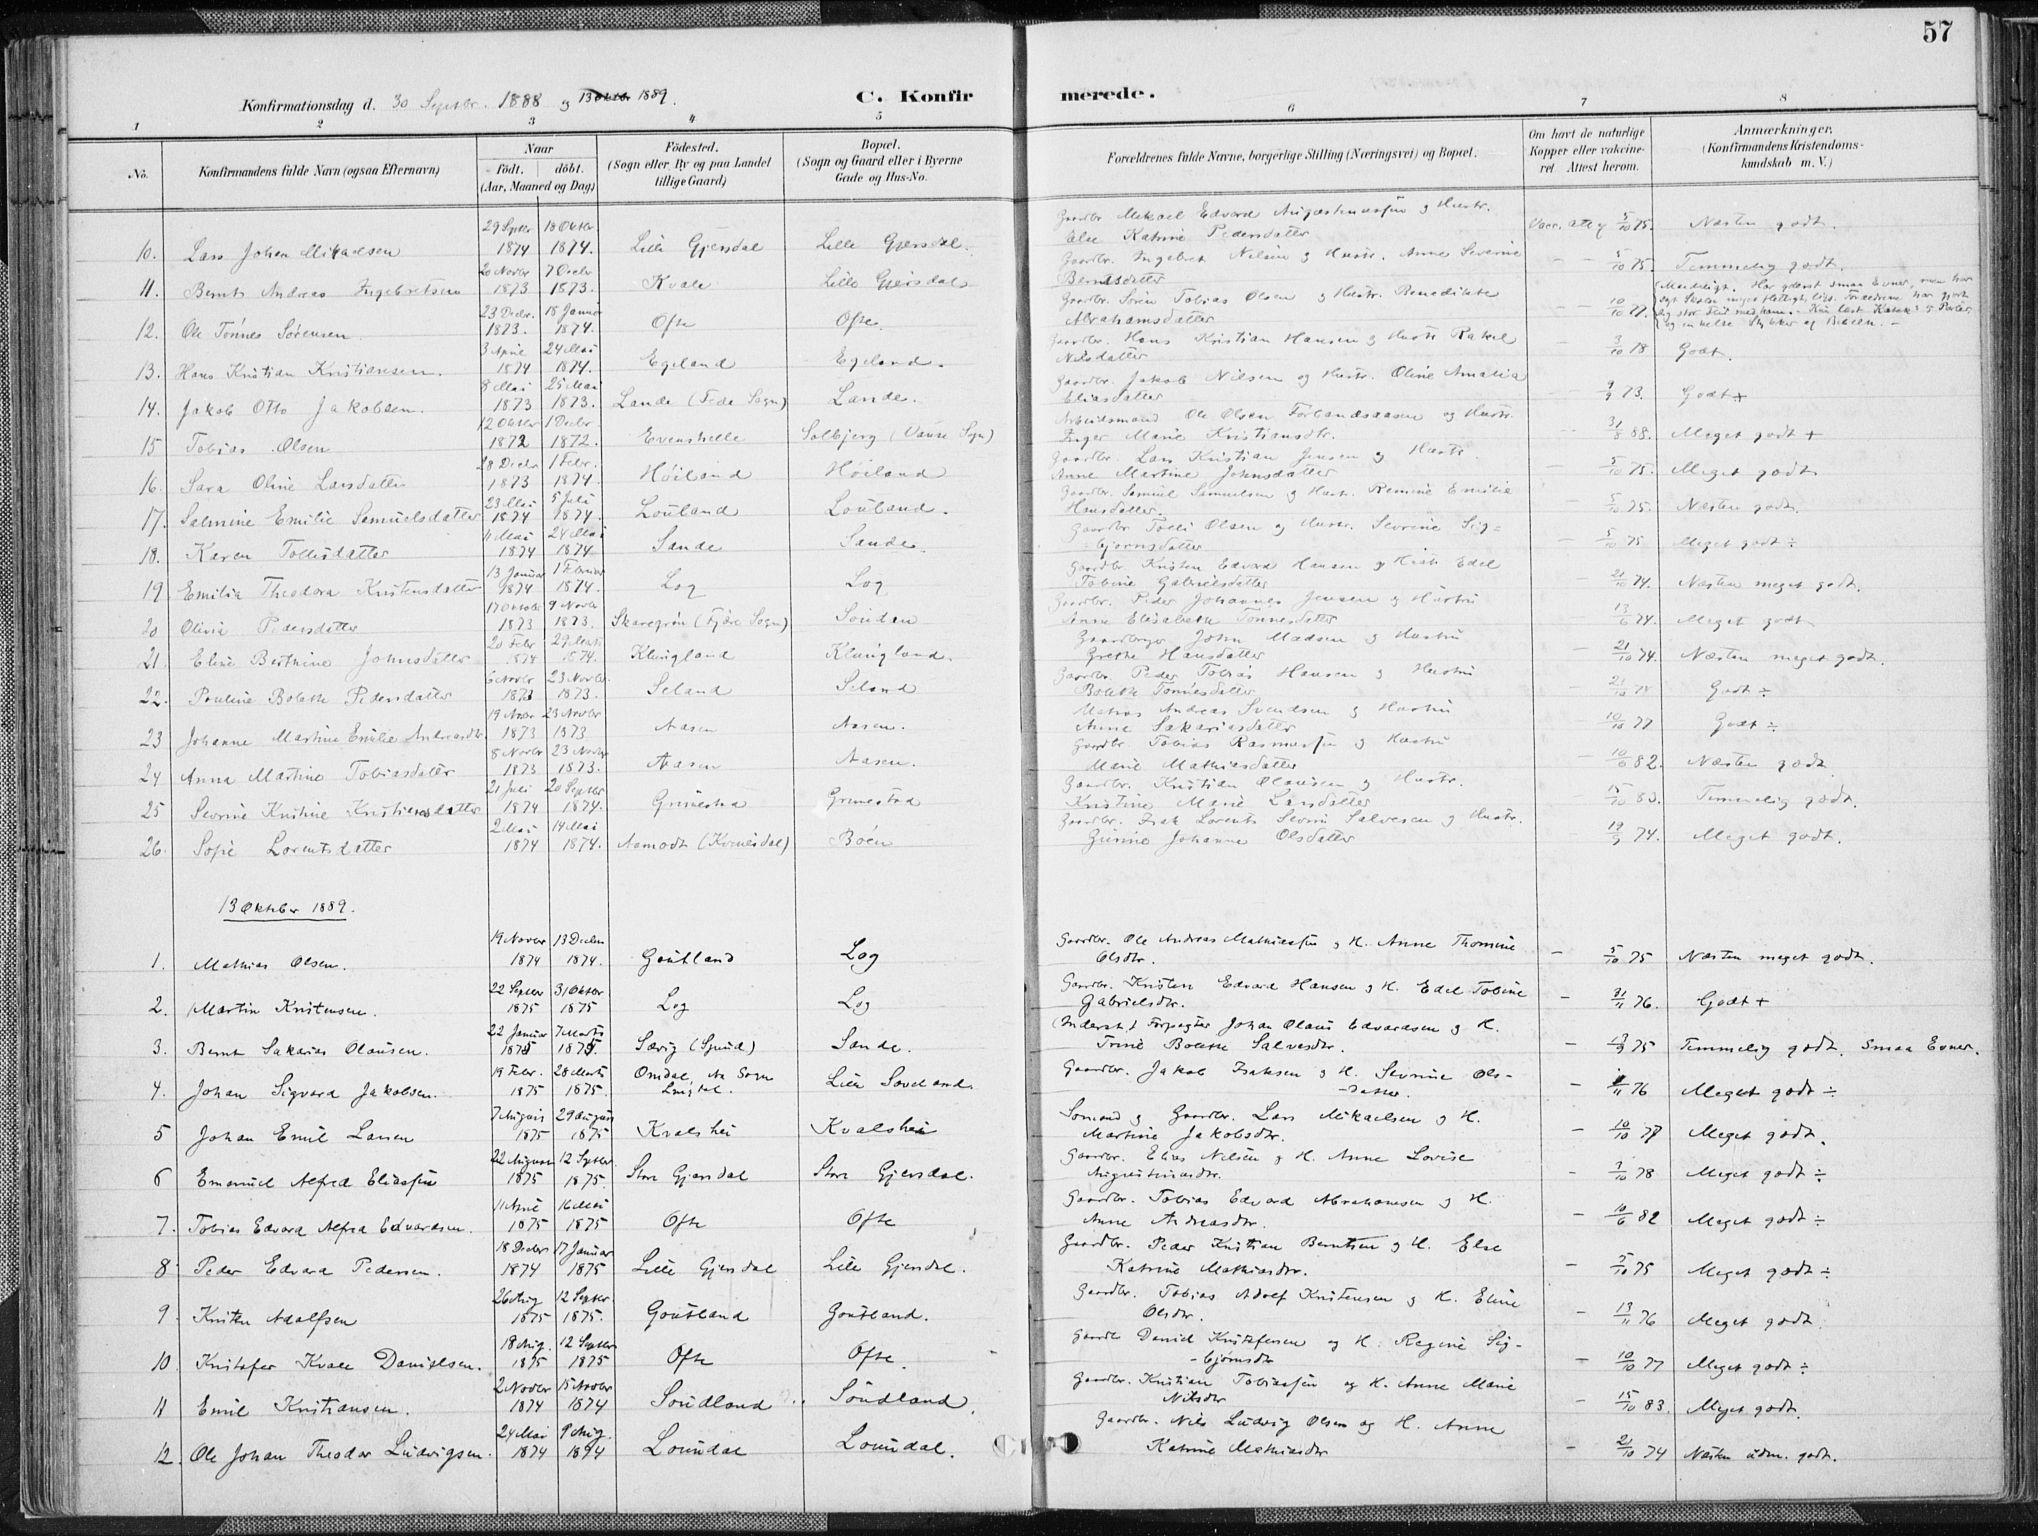 57
Konfirmationsdag d. 30 Septbr. 1888 og 13 Oktb. 1889.
C. Konfirmerede.
1 2 3 4 5 6 7 8
No.
Konfirmandens fulde Navn (ogsaa Efternavn)
Naar
födt. döbt.
(Aar, Maaned og Dag)
Födested.
(Sogn eller By og paa Landet
tillige Gaard)
Bopæl.
(Sogn og Gaard eller i Byerne
Gade og Hus-No.
Forældrenes fulde Navne, borgerlige Stilling (Næringsvei) og Bopæl.
Om havt de naturlige
Kopper eller vakcine-
ret Attest herom.
Anmærkninger,
(Konfirmandens Kristendoms-
kundskab m. V.)
Gaardbr. Mikael Edvard Augustinussøn og Hustr.
29 Septbr 18 Oktbr
10. Lars Johan Mikaelsen 1874 1874. Lille Gjersdal Lille Gjersdal. Else Katrine Pedersdatter Vacc. att. 5/10 75. Næsten godt.
20 Novbr 7 Decbr Gaardbr. Ingebret Nilsen og Hustr. Anne Severine
11. Bernt Andreas Ingebretsen 1873 1873. Kvale Lille Gjersdal Berntsdatter – – 5/10 75. Temmelig godt.
23 Decbr. 18 Januar Gaardbr. Sören Tobias Olsen og Hustr. Benedikte
12. Ole Tönnes Sörensen 1873. 1874. Ofte Ofte. Abrahamsdatter – – 10/10 77.
3 April 24 Mai Gaardbr. Hans Kristian Hansen og Hustr Rakel
13. Hans Kristian Kristiansen. 1874 1874. Egeland Egeland. Nilsdatter – 3/10 78 Godt.
8 Mai 25 Mai Gaardbr. Jakob Nilsen og Hustr. Oline Amalia
14. Jakob Otto Jakobsen. 1873 1873. Lande (Fede Sogn) Lande. Eliasdatter – 9/9 73. Godt +
12 Oktbr 1 Decbr Arbeidsmand Ole Olsen Forlandsaasen og Hustr.
15 Tobias Olsen 1872 1872. Evenshelle Solbjerg (Vanse Sogn) Inger Marie Kristiansdtr. – 31/8 88. Meget godt +
28 Decbr 1 Febr. Gaardbr. Lars Kristian Jensen og Hustr.
16. Sara Oline Larsdatter 1873 1874. Höiland Höiland Anne Martine Johnsdatter – 5/10 75. Meget godt
23 Mai 5 Juli Gaardbr. Samuel Samuelsen og Hustr. Remine Emilie
17. Salmine Emilie Samuelsdatter 1874 1874. Louland Louland. Hansdatter. – 5/10 75. Næsten godt.
11 Mai 24 Mai Gaardbr Tollis Olsen og Hustr. Severine Sig=
18. Karen Tollisdatter 1874 1874 Sande Sande. bjørnsdatter – 5/10 75 Meget godt ÷
13 Januar 1 Februar Gaardbr. Kristen Edvard Hansen og Hustr Edel
19 Emilia Theodora Kristensdatter 1874 1874. Log Log Tobine Gabrielsdatter – 21/10 74. Næsten meget godt.
17 Oktobr 9 Novbr Gaardbr. Peder Johannes Jensen og Hustru
20 Olivia Pedersdatter 1873 1873. Skaregrön (Fjære Sogn) Sønden Anne Elisabeth Tønnesdatter 13/6 74. Meget godt
20 Febr 29 Marts Gaardbruger John Madsen og Hustru
21. Eline Bertine Johnsdatter 1874 1874. Klungland Klungland. Grethe Hansdatter – 21/10 74. Næsten meget godt.
6 Novbr 23 Novbr. Gaardbr Peder Tobias Hansen og Hustru
22. Pauline Bolette Pedersdatter 1873 1873. Seland Seland Bolette Tønnesdatter – 21/10 74 Godt ÷
19 Novbr 23 Novbr Matros Andreas Svendsen og Hustru
23 Johanne Martine Emilie Andreasdtr. 1873 1873 Aasen Aasen. Anne Sakariasdatter – 10/10 77 Godt ÷
8 Novbr 23 Novbr Gaardbr Tobias Rasmussen og Hustru
24 Anna Martine Tobiasdatter 1873 1873. Aasen Aasen. Marie Mathiasdatter – 10/6 82. Næsten godt.
21 Juli 20 Septbr Gaardbr. Kristian Olausen og Hustr.
25 Severine Kristine Kristiansdatter 1874 1874. Grimestad Grimestad Kristine Marie Larsdatter – 15/10 83. Temmelig godt.
2 Mai 14 Mai Gaardbr. Isak Lorents Severin Salvesen og Hustr.
26. Sofie Lorentsdatter 1874 1874. Aamodt (Kvinesdal) Böen Gurine Johanne Olsdatter 19/9 74. Meget godt.
13 Oktober 1889.
19 Novbr 13 Decbr Gaardbr. Ole Andreas Mathiassen og H. Anne Thomine
1. Mathias Olsen. 1874 1874. Goutland Log Olsdtr. – 5/10 75 Næsten meget godt.
22 Septbr 31 Oktbr Gaardbr. Kristen Edvard Hansen og H. Edel Tobine
2. Martin Kristensen. 1875 1875 Log Log Gabrielsdtr. – 21/11 76. Godt +
22 Januar 7 Marts (Inderst) Forpagter Johan Olaus Edvardsen og H.
3. Bernt Sakarias Olausen. 1875 1875. Særig (Spind) Sande. Trine Bolette Salvesdtr. – 75 Temmelig godt. Smaa Evner.
19 Febr. 28 Marts Omdal, Aa Sogn Gaardbr. Jakob Isaksen og H. Severine Ols-
4. Johan Sigvard Jakobsen. 1875 1875. Lyngdal. Lille Soveland. datter. – 76 Meget godt ÷
7 August 29 August Sømand og Gaardbr. Lars Mikaelsen og H.
5 Johan Emil Larsen 1875 1875 Kvalshei Kvalshei Martine Jakobsdtr. – 10/10 77 Meget godt.
22 August 12 Septbr. Gaardbr. Elias Nilsen og H. Anne Lovise
6 Emanuel Alfred Eliassen 1875 1875. Store Gjersdal Store Gjersdal. Augustinusdtr. – 3/10 78 Meget godt ÷
11 April 16 Mai Gaardbr. Tobias Edvard Abrahamsen og H.
7. Tobias Edvard Alfred Edvardsen. 1875 1875 Ofte Ofte Anne Andreasdtr. – 10/6 82 Meget godt ÷
18 Decbr 17 Januar Gaardbr. Peder Kristian Berntsen og H. Else
8 Peder Edvard Pedersen. 1874 1875 Lille Gjersdal Lille Gjersdal. Katrine Mathiasdtr. – 5/10 75 Meget godt ÷
26 Aug. 12 Septbr. Gaardbr. Tobias Adolf Kristensen og H. Eline
9 Kristen Adolfsen 1875 1875. Goutland Goutland. Olsdtr. – 13/11 76 Meget godt.
18 Aug. 12 Septbr Gaardbr Daniel Kristofersen og H. Regine Sig-
10 Kristofer Kvale Danielsen. 1875 1875 Ofte Ofte. bjørnsdtr – 10/10 77 Meget godt ÷
2 Novbr 15 Novbr Gaardbr. Kristian Tobiassen og H. Anne Marie
11 Emil Kristiansen. 1874 1874 Soudland Soudland. Nilsdtr – 15/10 83. Meget godt.
24 Mai 9 Aug. Gaardbr. Nils Ludvig Olsen og H. Anne
12. Ole Johan Theodor Ludvigsen. 1874 1874 Loundal Loundal. Katrine Mathiasdtr – 21/10 74 Næsten udm. godt.